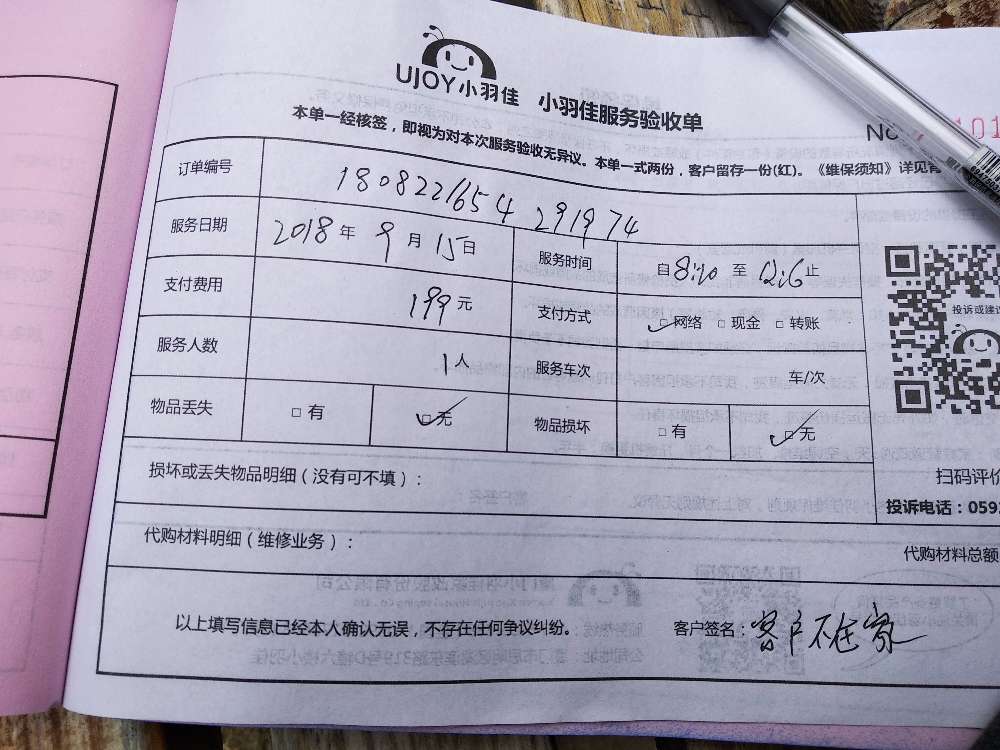 UJOY小羽佳 小羽佳服务验收单
No 101
本单一经核签，即视为对本次服务验收无异议。本单一式两份，客户留存一份(红)。《维保须知》详见背
订单编号 1808221654 291974
服务日期 2018年9月15日 服务时间 自8:10至 止
支付费用 199元 支付方式 ☑网络 □现金 □转账
服务人数 1人 服务车次 车/次
物品丢失 □有 ☑无 物品损坏 □有 ☑无
投诉或建议
扫码评价
投诉电话：0592
损坏或丢失物品明细（没有可不填）：
代购材料明细（维修业务）： 代购材料总额
以上填写信息已经本人确认无误，不存在任何争议纠纷。 客户签名：客户不在家